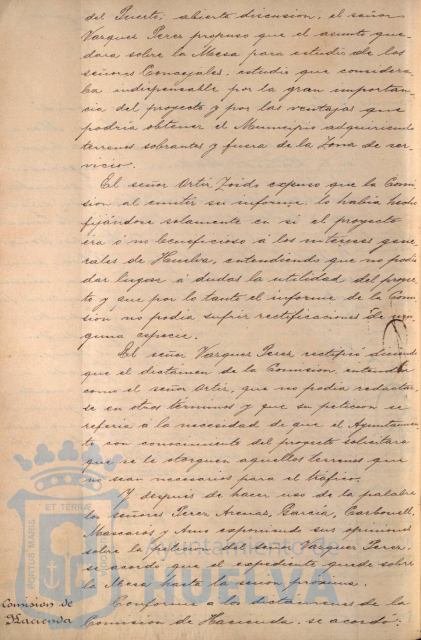 del Puerto; abierta discusion, el señor
Vazquez Perez propuso que el asunto que-
dara sobre la Mesa para estudio de los
señores Concejales, estudio que considera-
ba indispensable por la gran importan-
cia del proyecto y por las ventajas que
podria obtener el Municipio adquiriendo
terrenos sobrantes y fuera de la zona de ser-
vicio.
El señor Ortiz Zoido expuso que la Comi-
sion al emitir su informe lo habia hecho
fijándose solamente en si el proyecto
era ó no beneficioso á los intereses gene-
rales de Huelva, entendiendo que no podia
dar lugar á dudas la utilidad del proyec-
to y que por lo tanto el informe de la Comi-
sion no podia sufrir rectificaciones de nin-
guna especie.
El señor Vazquez Perez rectificó diciendo
que el dictámen de la Comision, entendia
como el señor Ortiz, que no podia redactar-
se en otros términos y que su peticion se
referia á la necesidad de que el Ayuntamien-
to con conocimiento del proyecto solicitara
que se le otorguen aquellos terrenos que
no sean necesarios para el tráfico.
Y después de hacer uso de la palabra
los señores Perez Arenas, Garcia, Carbonell,
Mascarós y exponiendo sus opiniones
sobre la peticion del señor Vazquez Perez,
se acordó que el expediente quede sobre
la Mesa hasta la sesión próxima.
Comision de
Hacienda
Conforme a los dictamenes de la
Comision de Hacienda, se acordó:
ET TERRÆ
PORTUS MARIS
Ayuntamiento de
HUELVA